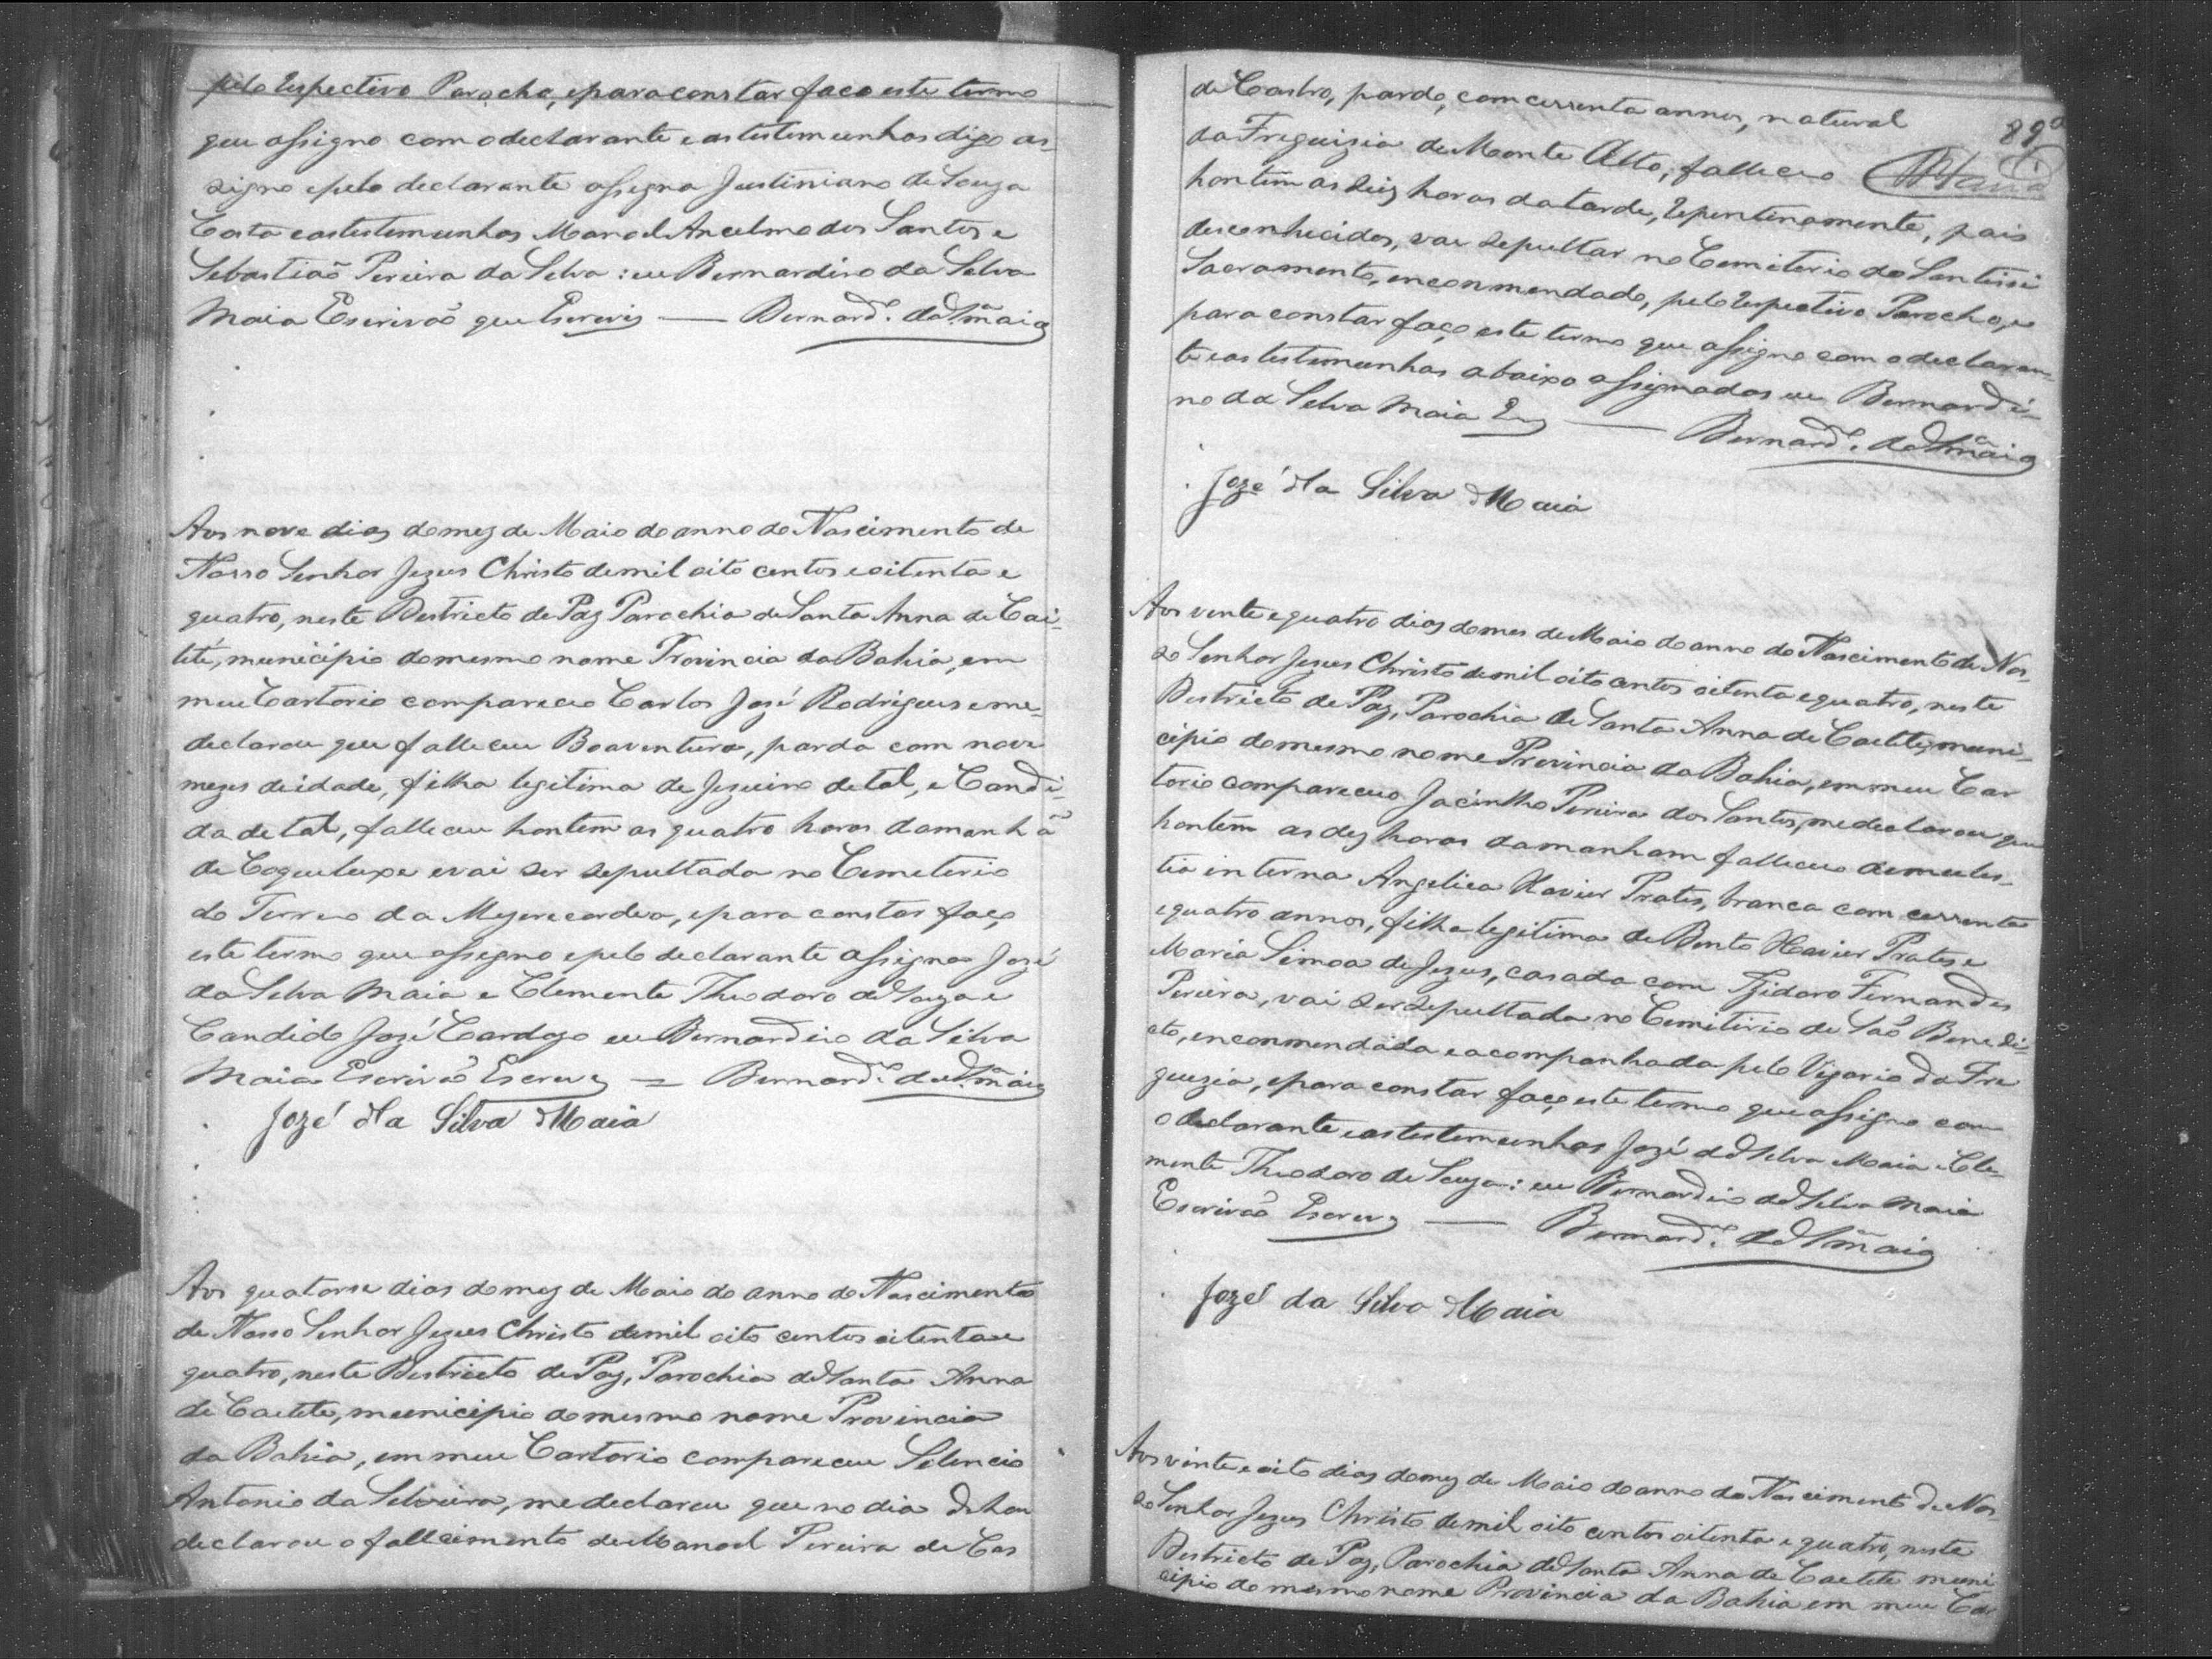 pelo respectivo Parocho, e para constar faço este termo
que assigno com o declarante e as testemunhas digo as-
signo e pelo declarante assigna Justiniano de Souza
Costa e as testemunhas Manoel Ancelmo dos Santos e
Sebastião Pereira da Silva : eu Bernardino da Silva
Maia Escrivaõ que Escrevi — Bernard.º da S.ª Maia
Aos nove dias do mez de Maio do anno do Nascimento de
Nosso Senhor Jezus Christo de mil oito centos e oitenta e
quatro, neste Destricto de Paz Parochia de Santa Anna de Cai-
teté, municipio do mesmo nome Provincia da Bahia, em
meu Cartorio compareceo Carlos José Rodrigues e me
declarou que falleceu Boaventura, parda com nove
mezes de idade, filha legitima de Jezuino de tal, e Candi-
da de tal, falleceu hontem as quatro horas da manhã
de Coqueluxe e vai ser sepultada no Cemeterio
do Terreno da Mizerecordia, e para constar faço
este termo que assigno e pelo declarante assigna José
da Silva Maia e Clemente Theodoro de Souza e
Candido José Cardozo eu Bernardino da Silva
Maia Escrivaõ Escrevy — Bernard.º da S.ª Maia
Jozé da Silva Maia
Aos quatorse dias do mez de Maio do anno do Nascimento
de Nosso Senhor Jezus Christo de mil oito centos oitenta e
quatro, neste Destricto de Paz, Parochia de Santa Anna
de Caeteté, municipio do mesmo nome Provincia
da Bahia, em meu Cartorio compareceu Silencio
Antonio da Silveira, me declarou que no dia
declarou o fallecimento de Manoel Pereira de Cas
de Castro, pardo, com cecenta annos, natural
89
da Freguizia de Monte Alto, falleceo
Maia
hontem as seis horas da tarde, repentinamente, pais
desconhecidos, vai sepultar no Cemiterio do Santissi
Sacramento, encommendado, pelo respectivo Parocho, e
para constar faço este termo que assigno com o declaran-
te e as testemunhas abaixo assignadas eu Bernardi-
no da Silva Maia — Bernard.º da S.ª Maia
Jozé da Silva Maia
Aos vente e quatro dias do mes de Maio do anno do Nascimento de Nos-
so Senhor Jesus Christo de mil oito centos oitenta e quatro, neste
Destricto de Paz, Parochia de Santa Anna de Caeteté, muni-
cipio do mesmo nome Provincia da Bahia, em meu Car
torio compareceu Jacintho Pereira dos Santos, me declarou que
hontem as dez horas da manham falleceu de moles-
tia interna Angelica Xavier Prates, branca com cecenta
e quatro annos, filha legitima de Bento Xavier Prates e
Maria Simoa de Jezus, casada com Izidoro Fernandes
Pereira, vai ser sepultada no Cemiterio de Saõ Benedi-
cto, encommendada e acompanhada pelo Vigario da Fre
guezia, e para constar faço este termo que assigno com
o declarante e as testemunhas José da Silva Maia e Cle-
mente Theodoro de Souza : eu Bernardino da Silva Maia
Escrivaõ Escrevy — Bernard.º da S.ª Maia
Jozé da Silva Maia
Aos vinte e oito dias do mez de Maio do anno do Nascimento de Nos
so Senhor Jezus Christo de mil oito centos oitenta e quatro, neste
Destricto de Paz, Parochia de Santa Anna de Caeteté muni
cipio do mesmo nome Provincia da Bahia em meu Car